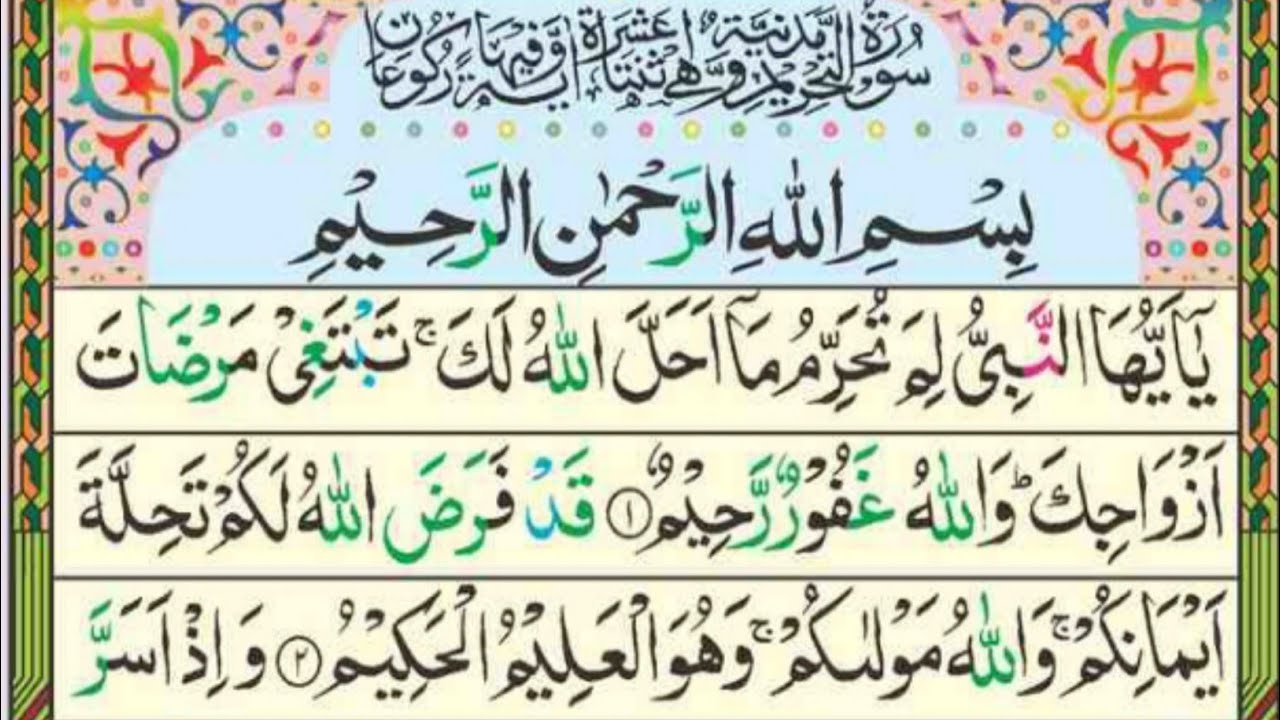 سُوْرَةُ التَّحْرِيْمِ مَدَنِيَّةٌ وَّهِيَ اثْنَتَا عَشْرَةَ اٰيَةً وَّفِيْهَا رُكُوْعَانِ
بِسْمِ اللّٰهِ الرَّحْمٰنِ الرَّحِيْمِ
يٰۤاَيُّهَا النَّبِىُّ لِمَ تُحَرِّمُ مَاۤ اَحَلَّ اللّٰهُ لَكَ ۚ تَبْتَغِىْ مَرْضَاتَ
اَزْوَاجِكَ ؕ وَاللّٰهُ غَفُوْرٌ رَّحِيْمٌ ۝۱ قَدْ فَرَضَ اللّٰهُ لَكُمْ تَحِلَّةَ
اَيْمَانِكُمْ ۚ وَاللّٰهُ مَوْلٰىكُمْ ۚ وَهُوَ الْعَلِيْمُ الْحَكِيْمُ ۝۲ وَاِذْ اَسَرَّ